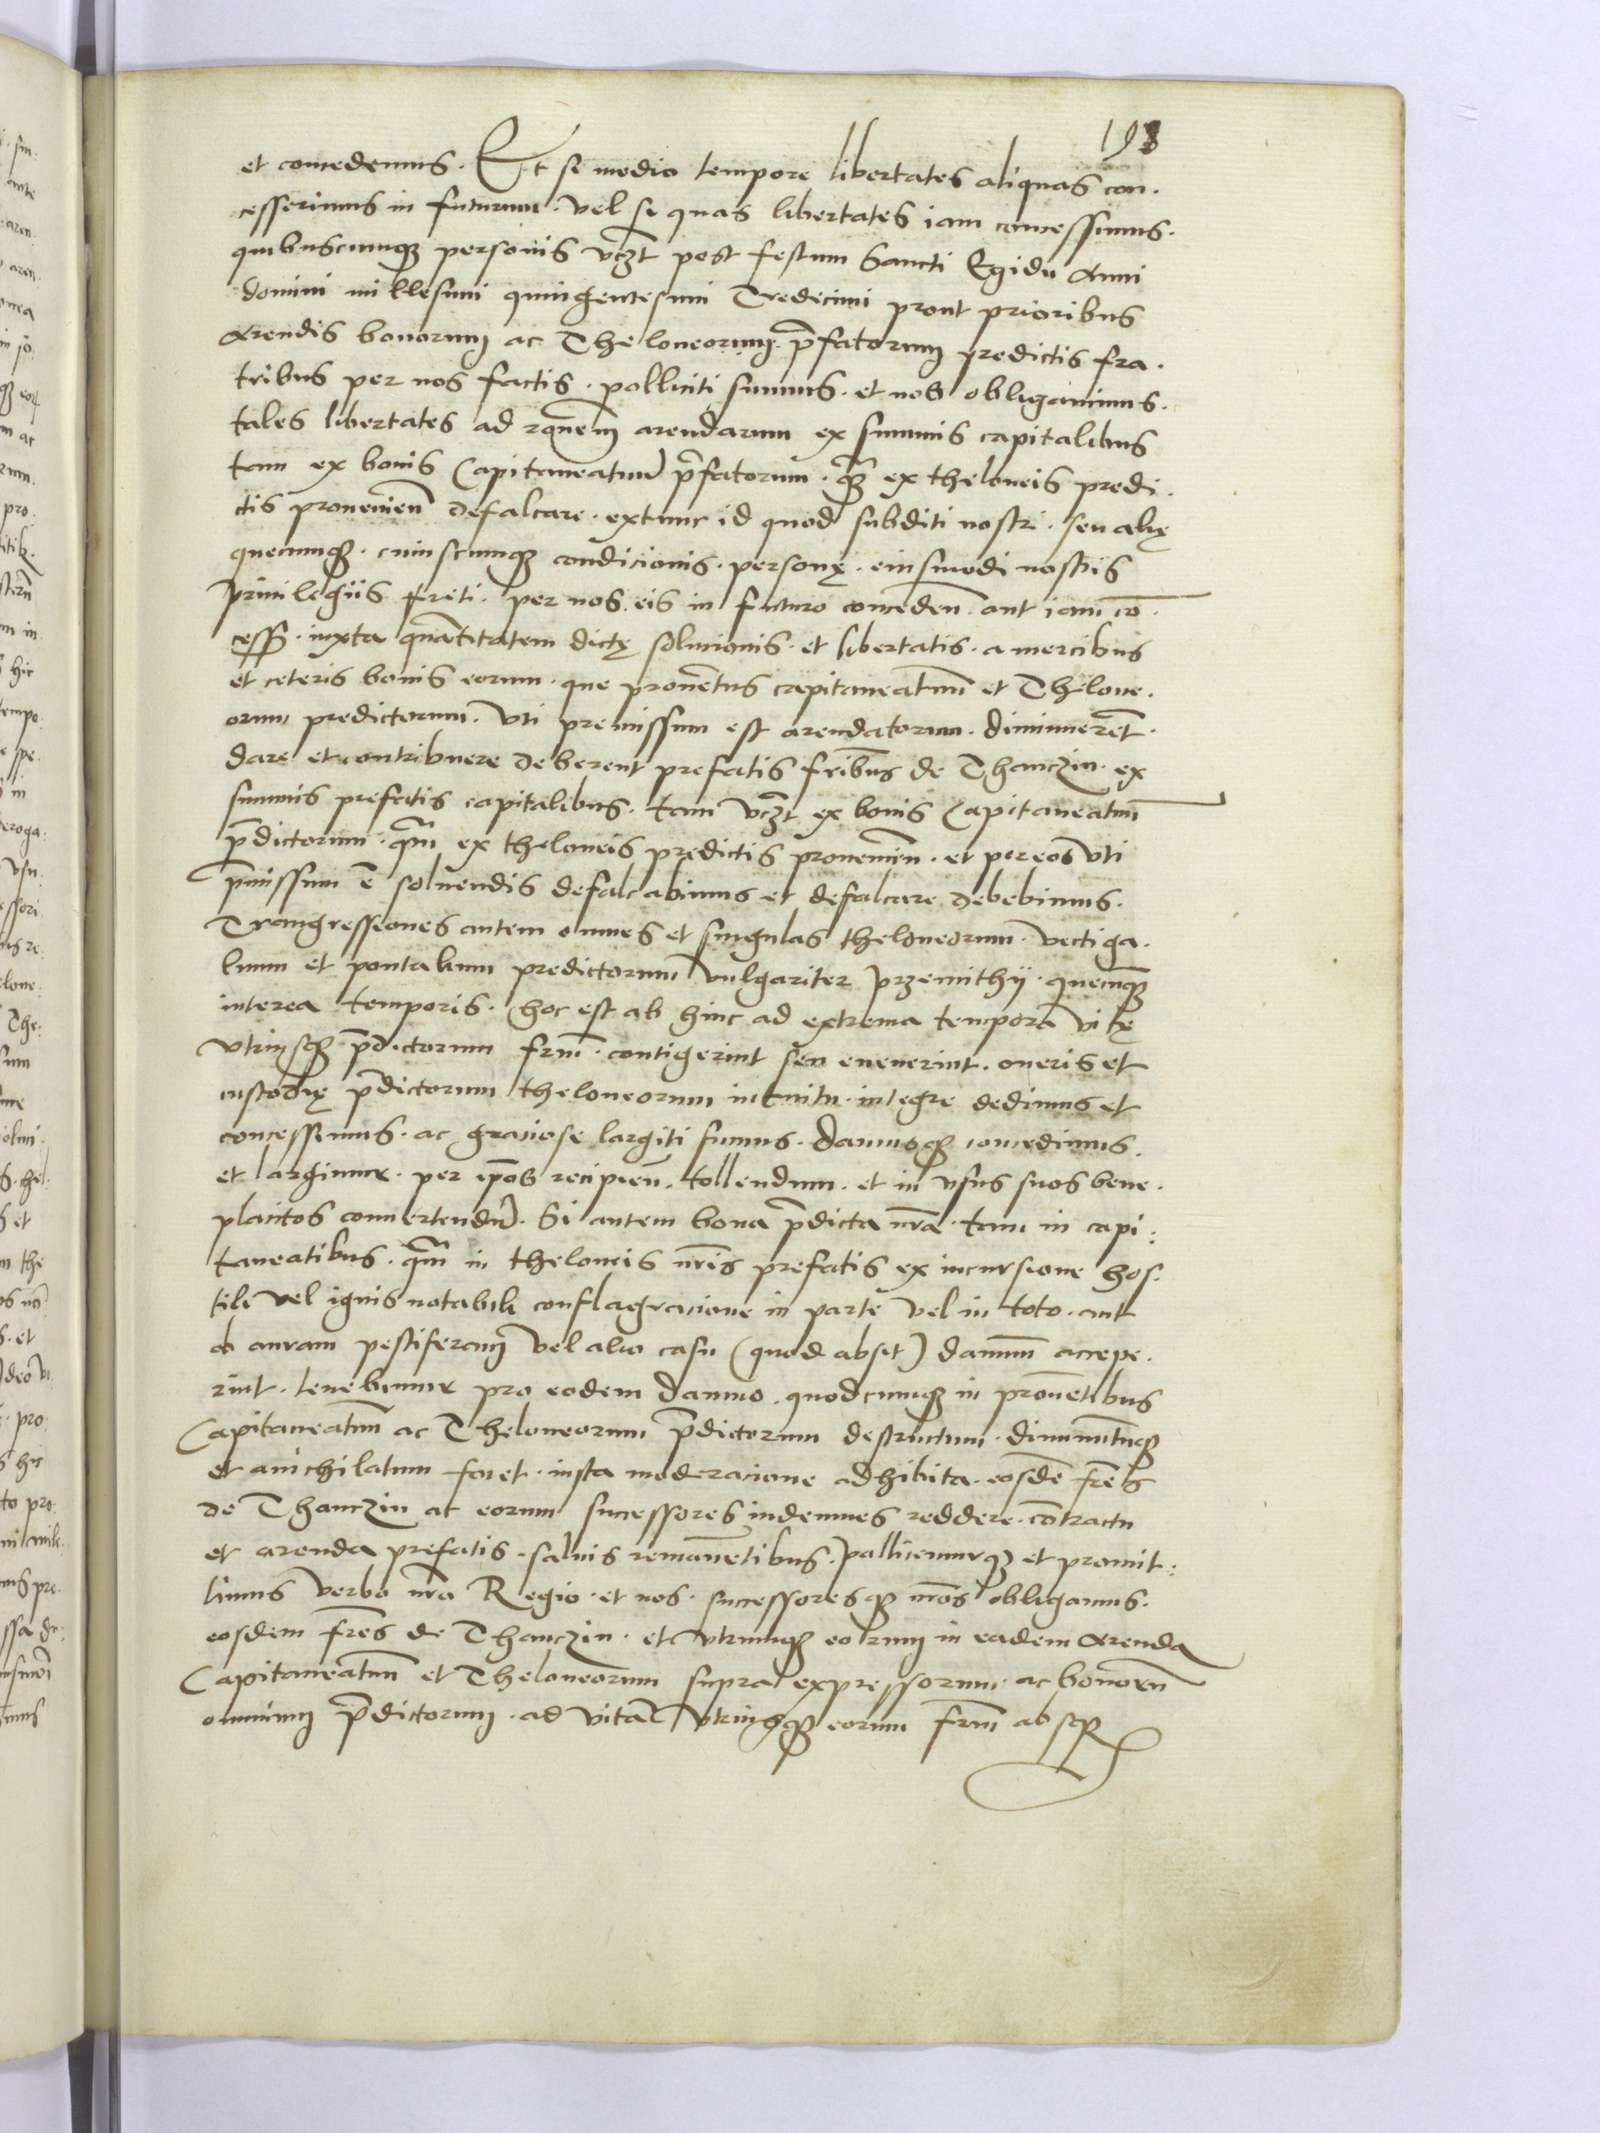 193
et concedemus. Et se medio tempore libertates aliquas con.
cesserimus in futurum. vel se quas libertates iam concessimus.
quibuscumq personis vczt post festum Sancti Egidii Anni
domini millesimi quingentesimi Tredecimi prout prioribus
Arendis bonorum ac Theloneorum prefatorum predictis fra.
tribus per nos factis. polliciti sumus. et nos obligavimus.
tales libertates ad rqnem arendarum ex summis capitalibus
tam ex bonis Capitaneatuu prefatorum. qm ex theloneis predi.
ctis provenien defalcare. extunc id quod subditi nostri. seu alię
quecumq. cuiuscumq condicionis. personę. eiusmodi nostris
privilegiis freti. per nos eis in futuro conceden. aut iam co.
cess. iuxta quantitatem dictę solucionis. et libertatis. a mercibus
et ceteris bonis eorum. que proventus capitaneatuum et Thelone.
orum predictorum. vti premissum est arendatorum. diminueret.
dare et contribuere deberent prefatis fribus de Thanczin. ex
summis prefatis capitalibus. tam vczt ex bonis Capitaneatuum
pdictorum. qm ex theloneis predictis provenien. et per eos vti
pmissum e solvendis defalcabimus et defalcare debebimus.
Trangressiones autem omnes et singulas theloneorum. vectiga.
lium et pontalium predictorum vulgariter przemithy. quecumq
interea temporis. hoc est ab hinc ad extrema tempora vitę
vtriusq pdictorum frum. contigerint seu evenerint. oneris et
custodię pdictorum theloneorum intuitu. integre dedimus et
concessimus. ac graciose largiti sumus. damusq concedimus.
et largimur. per ipos recipien. tollendum. et in vsus suos bene.
placitos convertendu. Si autem bona pdicta nra. tam in capi:
taneatibus. qm in theloneis nris prefatis ex incursione hos.
tili vel ignis notabili conflagracione in parte vel in toto. aut
ob auram pestiferam vel alio casu (quod absit) damnum accepe.
rint. tenebimur pro eodem damno. quodcumq in proventibus
Capitaneatuum ac Theloneorum pdictorum destructum. diminutumq
et annichilatum foret. iusta moderacione adhibita. eosde fres
de Thanczin ac eorum successores indemnes reddere. contractu
et arenda prefatis. salvis remanentibus. pollicemurq et promit:
timus verbo nro Regio. et nos. successoresq nros obligamus.
eosdem fres de Thanczin. et vtrumq eorum in eadem Arenda
Capitaneatuum et Theloneorum supra expressorum. ac bonorum
omnium pdictorum. ad vitam vtriusq eorum frum absq